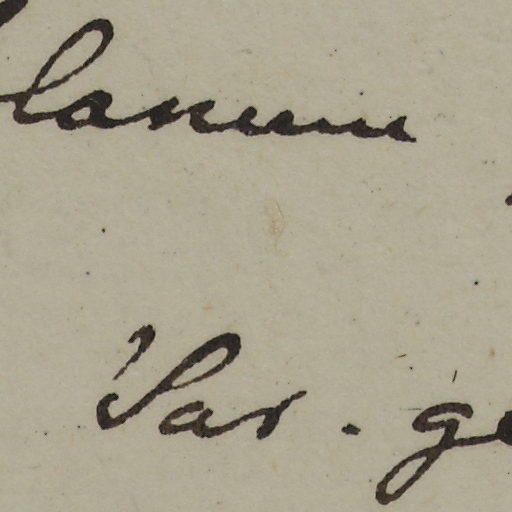 lanum
Var. ge